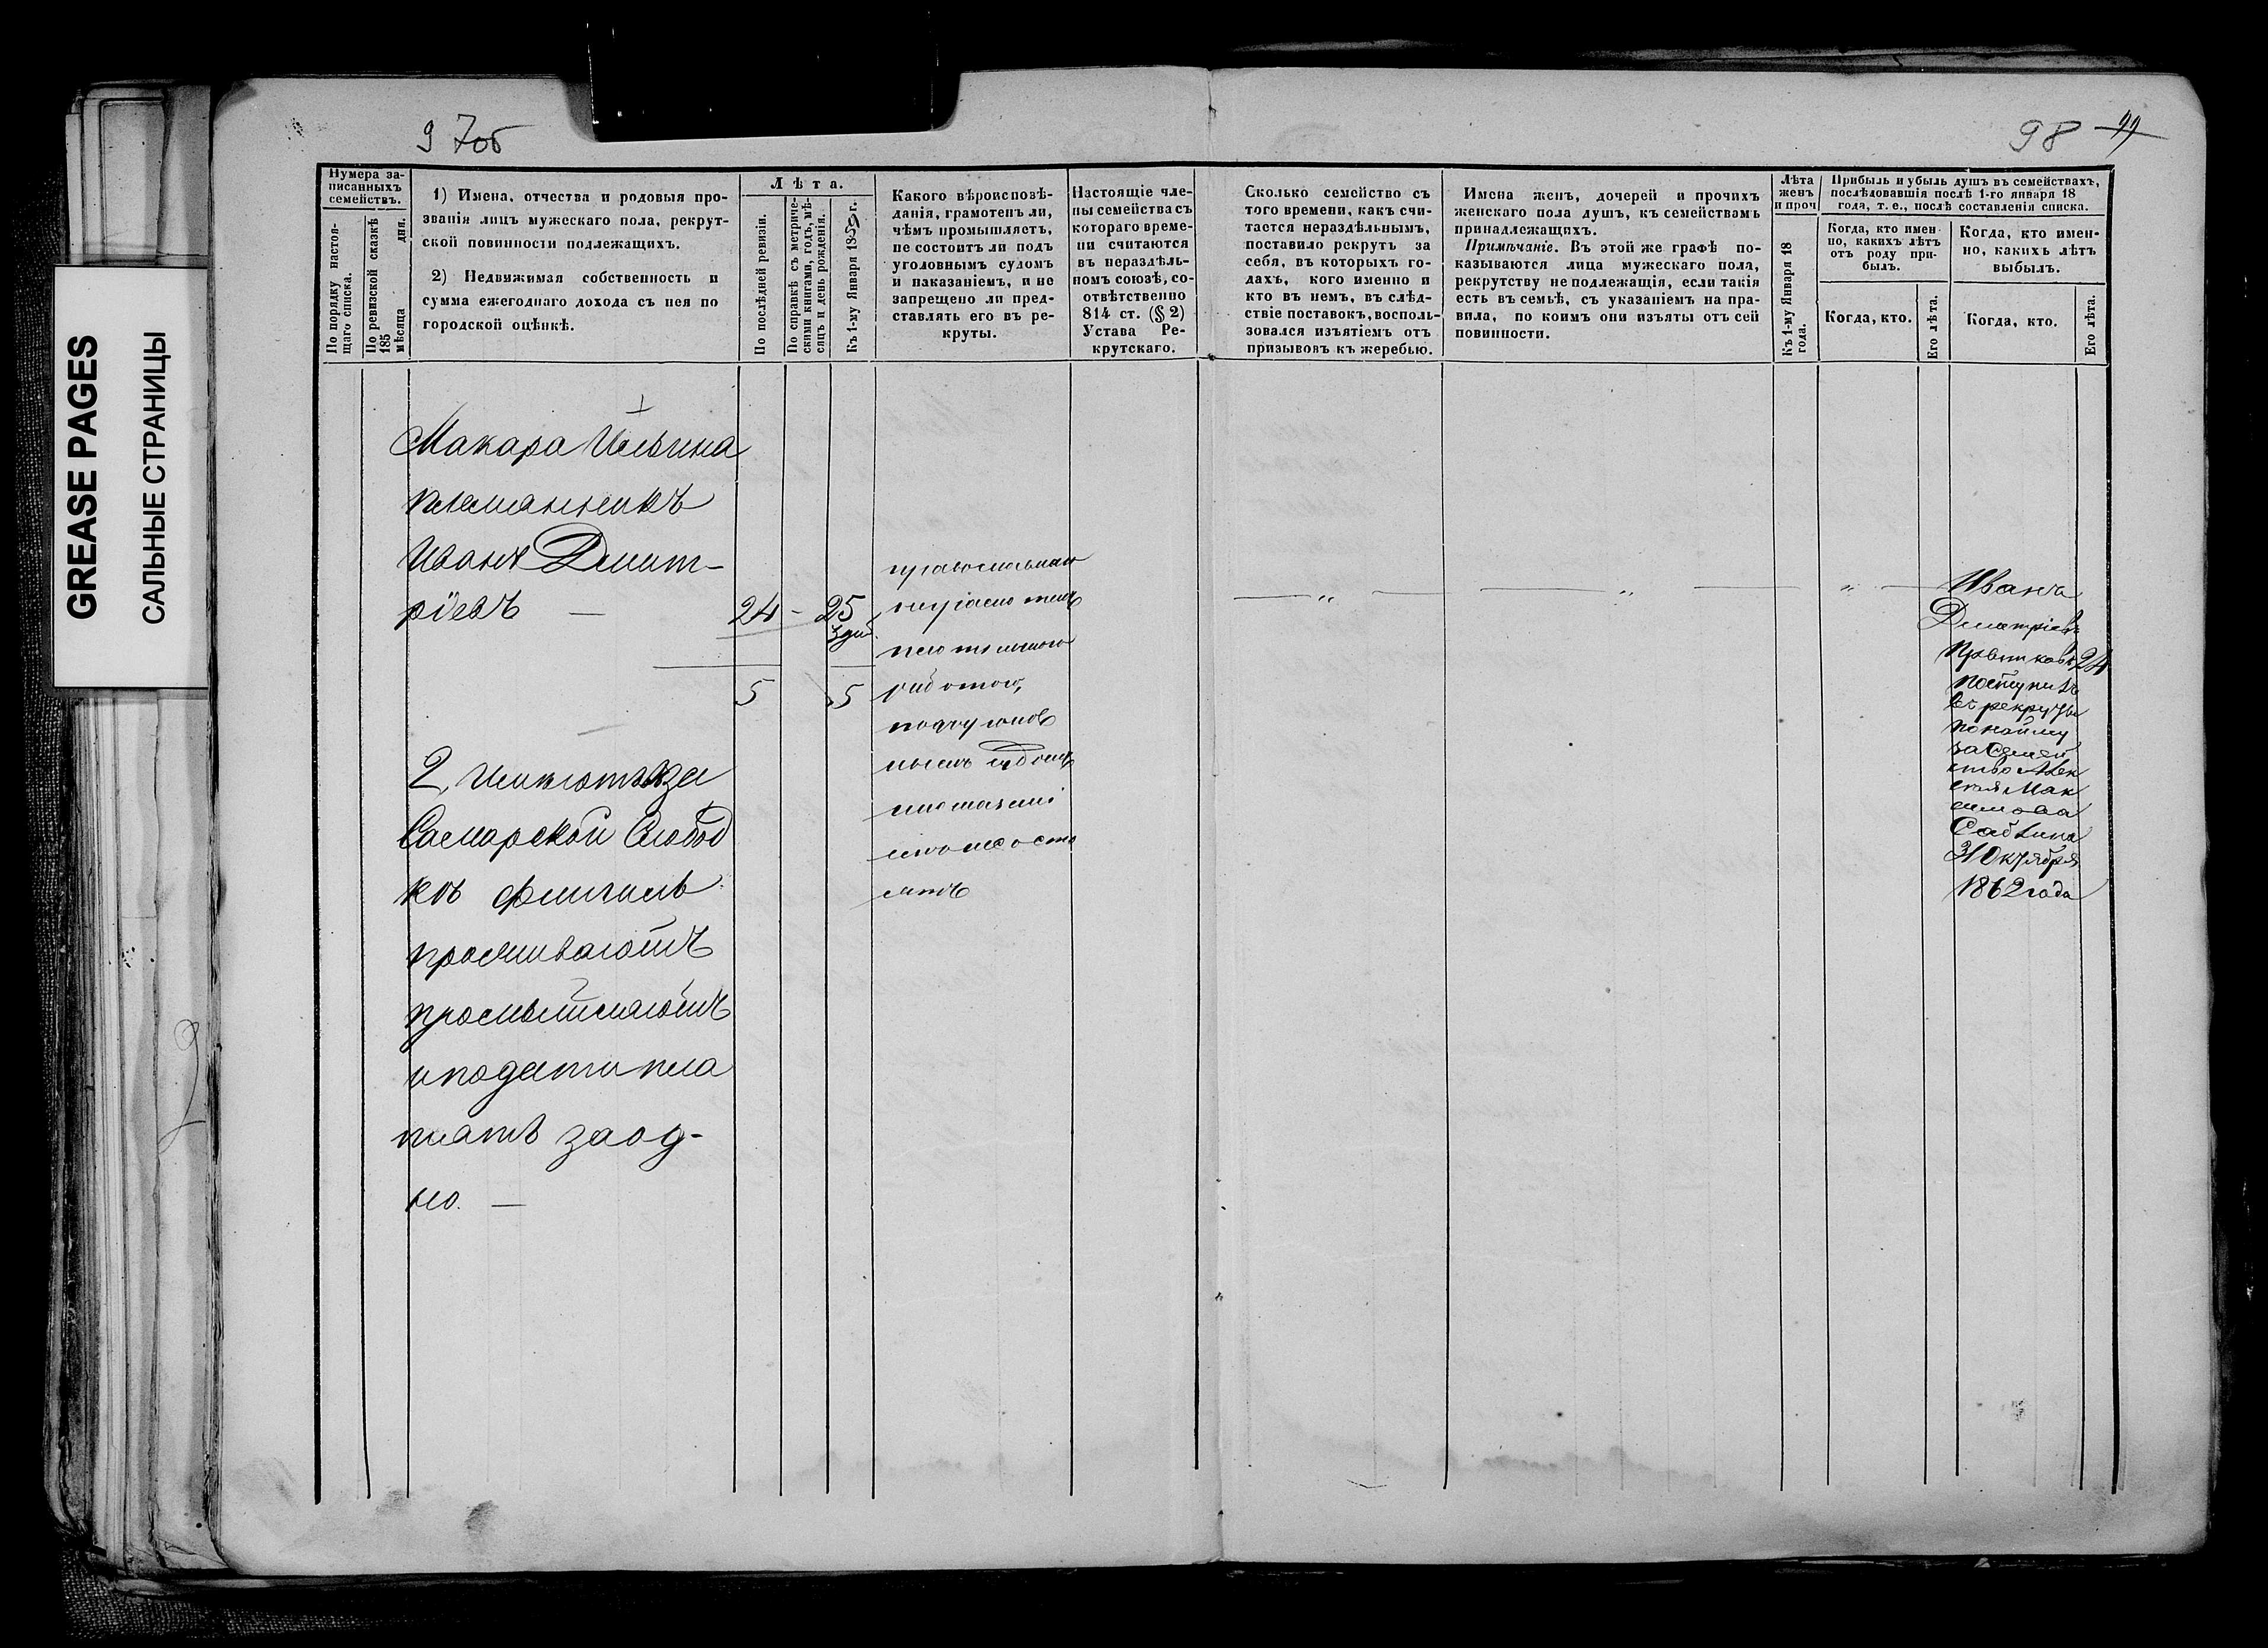 GREASE PAGES
САЛЬНЫЕ СТРАНИЦЫ
97об
98
Нумера за-
писанныхъ
семействъ.
По порядку настоя-
щаго списка.
По ревизской сказкѣ
185
мѣсяца дня.
1) Имена, отчества и родовыя про-
званія лицъ мужескаго пола, рекрут-
ской повинности подлежащихъ.
2) Недвижимая собственность и
сумма ежегоднаго дохода съ нея по
городской оцѣнкѣ.
Лѣта.
По послѣдней ревизіи.
По справкѣ съ метриче-
скими книгами, годъ, мѣ-
сяцъ и день рожденія.
Къ 1-му Января 1859 г.
Какого вѣроисповѣ-
данія, грамотенъ ли,
чѣмъ промышляетъ,
не состоитъ ли подъ
уголовнымъ судомъ
и наказаніемъ, и не
запрещено ли пред-
ставлять его въ ре-
круты.
Настоящіе чле-
ны семейства съ
котораго време-
ни считаются
въ нераздѣль-
номъ союзѣ, со-
отвѣтственно
814 ст. (§ 2)
Устава Ре-
крутскаго.
Сколько семейство съ
того времени, какъ счи-
тается нераздѣльнымъ,
поставило рекрутъ за
себя, въ которыхъ го-
дахъ, кого именно и
кто въ немъ, въ слѣд-
ствіе поставокъ, восполь-
зовался изъятіемъ отъ
призывовъ къ жеребью.
Имена женъ, дочерей и прочихъ
женскаго пола душъ, къ семействамъ
принадлежащихъ.
Примѣчаніе. Въ этой же графѣ по-
казываются лица мужескаго пола,
рекрутству неподлежащія, если такія
есть въ семьѣ, съ указаніемъ на пра-
вила, по коимъ они изъяты отъ сей
повинности.
Лѣта
женъ
и проч
Къ 1-му Января 18
года.
Прибыль и убыль душъ въ семействахъ,
послѣдовавшія послѣ 1-го января 18
года, т. е., послѣ составленія списка.
Когда, кто имен-
но, какихъ лѣтъ
отъ роду при-
былъ.
Когда, кто.
Его лѣта.
Когда, кто имен-
но, какихъ лѣтъ
выбылъ.
Когда, кто.
Его лѣта.
Макара Ильина
племянникъ
Иванъ Дмит-
ріевъ — 24 - 25
5 5
2,
Самарской Слобод
кѣ
проживаютъ
промышляютъ
и подати пла
тятъ заод-
но. —
православнаго
неграмотенъ
работою,
подъ уголов
нымъ судомъ
Иванъ
Дмитріевъ
24
поступилъ
въ рекруты
по найму
за Семей
ство Алек
сѣя Мак
симова
Саблина
31 Октября
1862 года